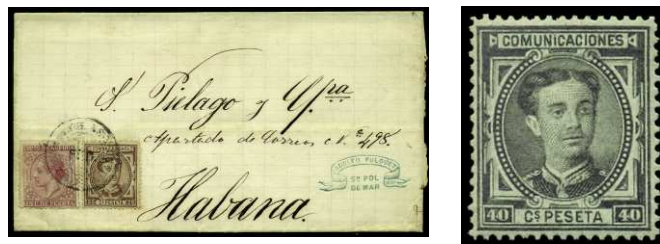 S.r Pielago y C.pra
Apartado de Correos N.º 498.
Habana.
SOLER PULGUET
Sn POL
DE MAR
COMUNICACIONES
40 Cs PESETA 40